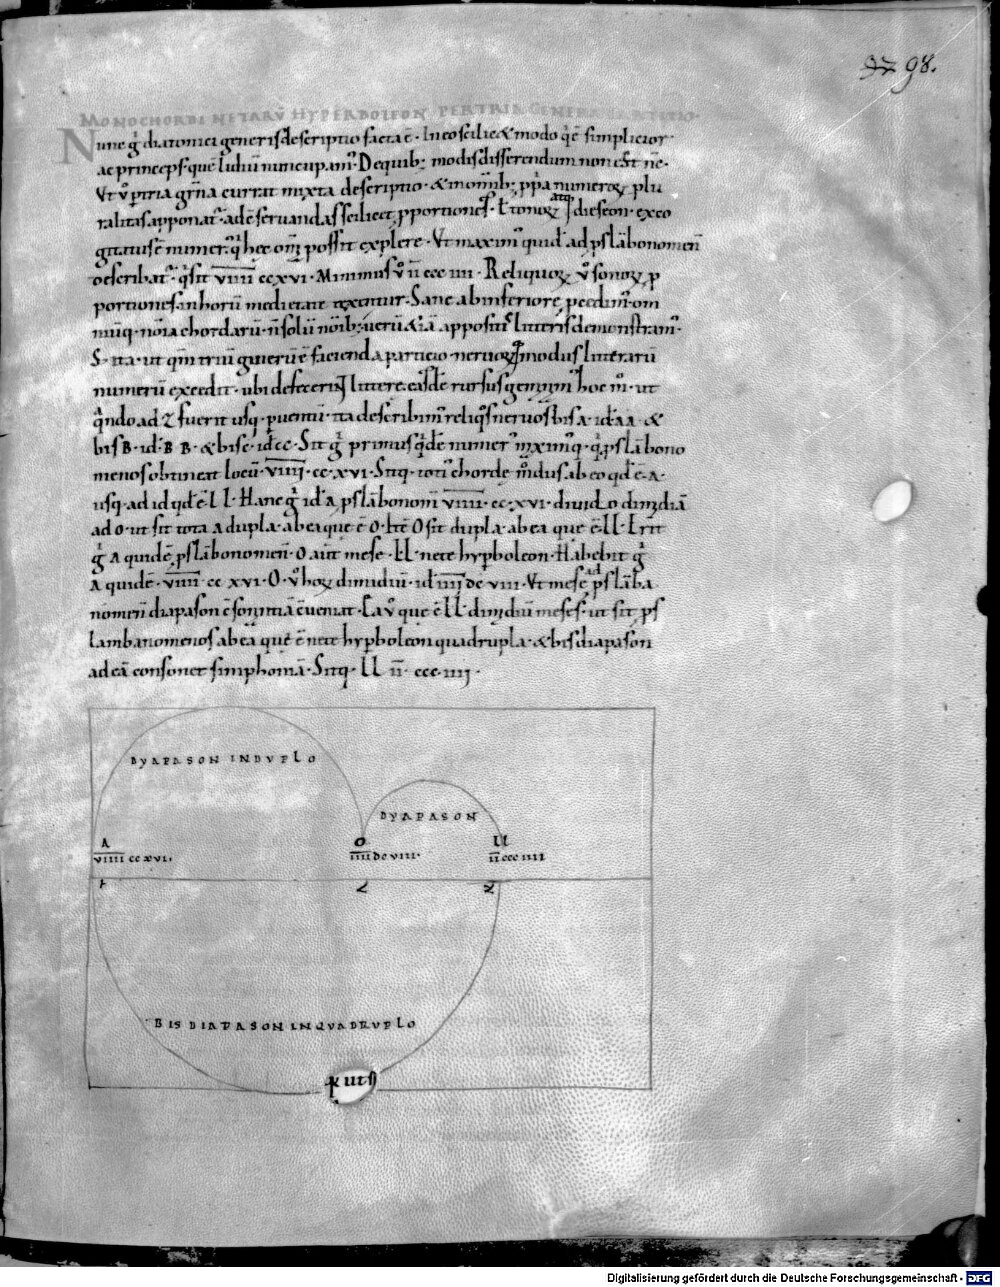 97 98.
MONOCHORDI NETARŪ HYPERBOLEON PER TRIA GENERA PARTITIO.
Nunc g̊ diatonici generis descriptio facta ē · In eo scilic& modo q̇ ē simplicior
ac princeps · quē lidiū nuncupamꝰ · De quib; modis disserendum non est nc̄ ·
Ut v̊ p tria gn̄a currat mixta descriptio · & in om̄ib; ppͥa numeroꝝ plu
ralitas apponatᷣ · ad ē servandas scilicet pportiones · t̄ tonoꝝ atq; dieseon · exco
gitatus ē numerꝰ q̇ hec om̄ia possit explere · Ut maximꝰ quid̄ ad pslābonomen̄
describatᷣ · q̇ sit v̄īīīī ccxvi · Minimus v̊ īī ccc iiii · Reliquoꝝ v̊ sonoꝝ p
portiones in horū medietate texentur · Sane ab inferiore p̄cedimꝰ · om
niūq; noīa chordarū · n̄ solū noīb; verū & iā appositꝭ litteris demonstramꝰ ·
S · ita · ut qm̄ triū generū ē facienda particio · nervoꝝq; modus litterarū
numerū excedit · ubi defecerint littere · easdē rursus geminamꝰ hoc mͦ · ut
q̇ndo ad Z fuerit usq; pventū · ita describimꝰ reliq̊s nervos bis A · id ē AA · &
bis B · id ē B B · & bis c · id ē cc · Sit g̊ primus q̇dē numerꝰ maximꝰq; q̇ pslābono
menos obtineat locū · v̄īīīī · cc · xvi · Sitq; totiꝰ chorde modus ab eo qd̄ ē · A ·
usq; ad id qd̄ ē · LL · Hanc g̊ id ē A pslābonom̄ v̄īīīī · cc · xvi · divido dimidiā
ad O · ut sit tota A dupla · ab ea que ē O · Itē O sit dupla · ab ea que ē LL · Erit
g̊ A quidē pslābonomen̄ · O aut̄ mese · LL · nete hypboleon · Habebit g̊
A quidē · v̄īīīī cc xvi · O · v̊ hoꝝ dimidiū · id ē īīīī dc viii · Ut mese ad pslāba
nomen̄ diapason ē sonitiā ēveniat · Ea v̊ que ē LL dimidiū meses · ut sit ps
lambanomenos ab ea que ē nete hypboleon quadrupla · & bisdiapason
ad eā consonet simphoniā · Sitq; LL īī · ccc iiii ·
DYAPASON IN DVPLO
DYAPASON
A
v̄īīīī cc xvi ·
O
īīīī dc viii ·
LL
īī ccc iiii
BIS DIAPASON IN QVADRVPLO
Digitalisierung gefördert durch die Deutsche Forschungsgemeinschaft - DFG